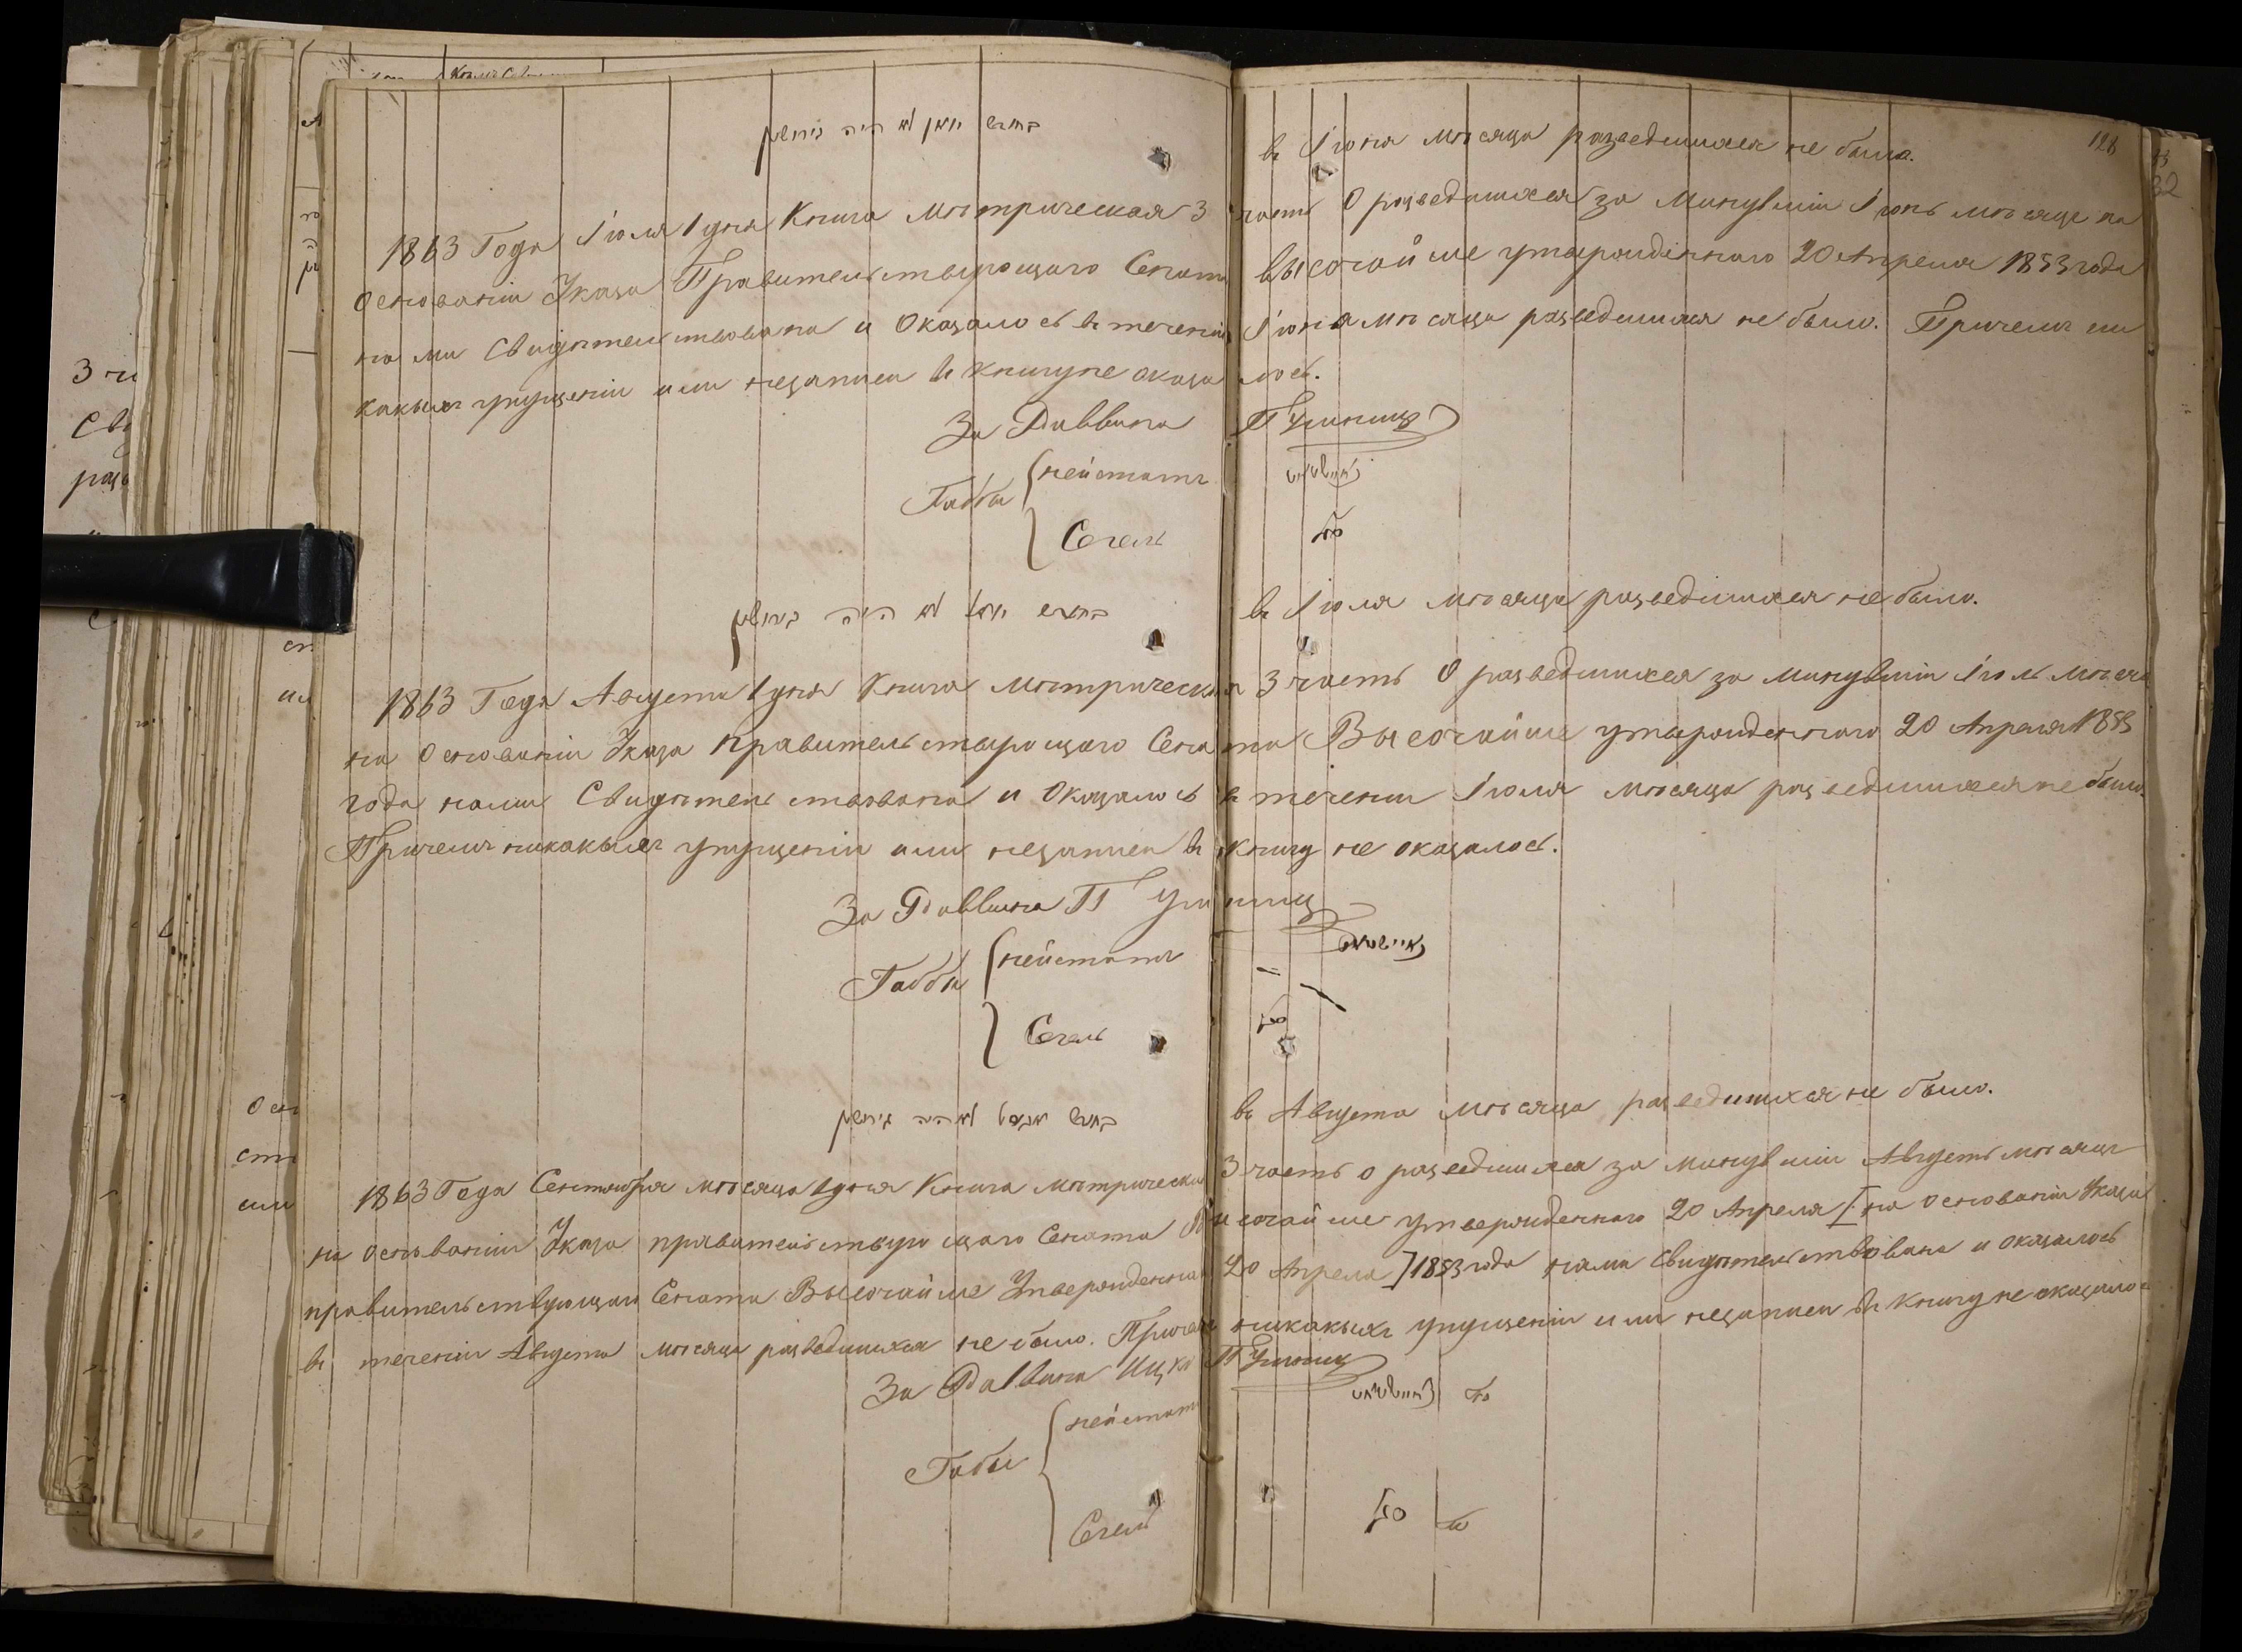 בחודש יואן לא היה גירושין
въ Іюня мѣсяца разведшихся не было.
128
1863 Года Іюля 1 дня Книга Мѣтрическая 3 часть О разведшихся за Минувшіи Іюнь мѣсяцъ на
основаніи Указа Правительствующаго Сената Высочайше утвержденного 20 Апреля 1853 года
нами Свидѣтельствована и Оказалось въ теченіи Іюня мѣсяца разведшихся не было. Причемъ ни
какыхъ упущеніи или незаписи въ книгу не оказалось.
За Раввина П
Габбы
Нейштатъ
Сегаль
בחודש יואל לא היה גירושין
въ Іюля мѣсяца разведшихся не было.
1863 Года Августа 1 дня Книга Мѣтрическая 3 часть О разведшихся за минувшіи Іюль мѣсяц
на Основаніи Указа Правительствующаго Сената Высочайше утвержденного 20 Апреля 1853
года нами Свидѣтельствована и Оказалось въ течении Іюля мѣсяца разведшихся не было.
Причемъ никакыхъ упущеніи или незаписи въ книгу не оказалось.
За Раввина П
Габбы
Нейштатъ
Сегаль
בחודש אבגוסט לא היה גירושין
въ Августа мѣсяца разведшихся не было.
1863 Года Сентября мѣсяца 1 дня Книга мѣтрическая 3 часть о разведшихся за минувшіи Августъ мѣсяцъ
на основаніи Указа правительствующаго Сената Высочайше утвержденного 20 Апреля [на основаніи Указа
правительствующаго Сената Высочайше Утвержденного 20 Апреля] 1853 года нами Свидѣтельствована и оказалось
въ теченіи Августа мѣсяца разведшихся не было. Причемъ никакыхъ упущеніи или незаписи въ книгу не оказалось
За Раввина Ицко
Габы
Нейштатъ
Сегаль